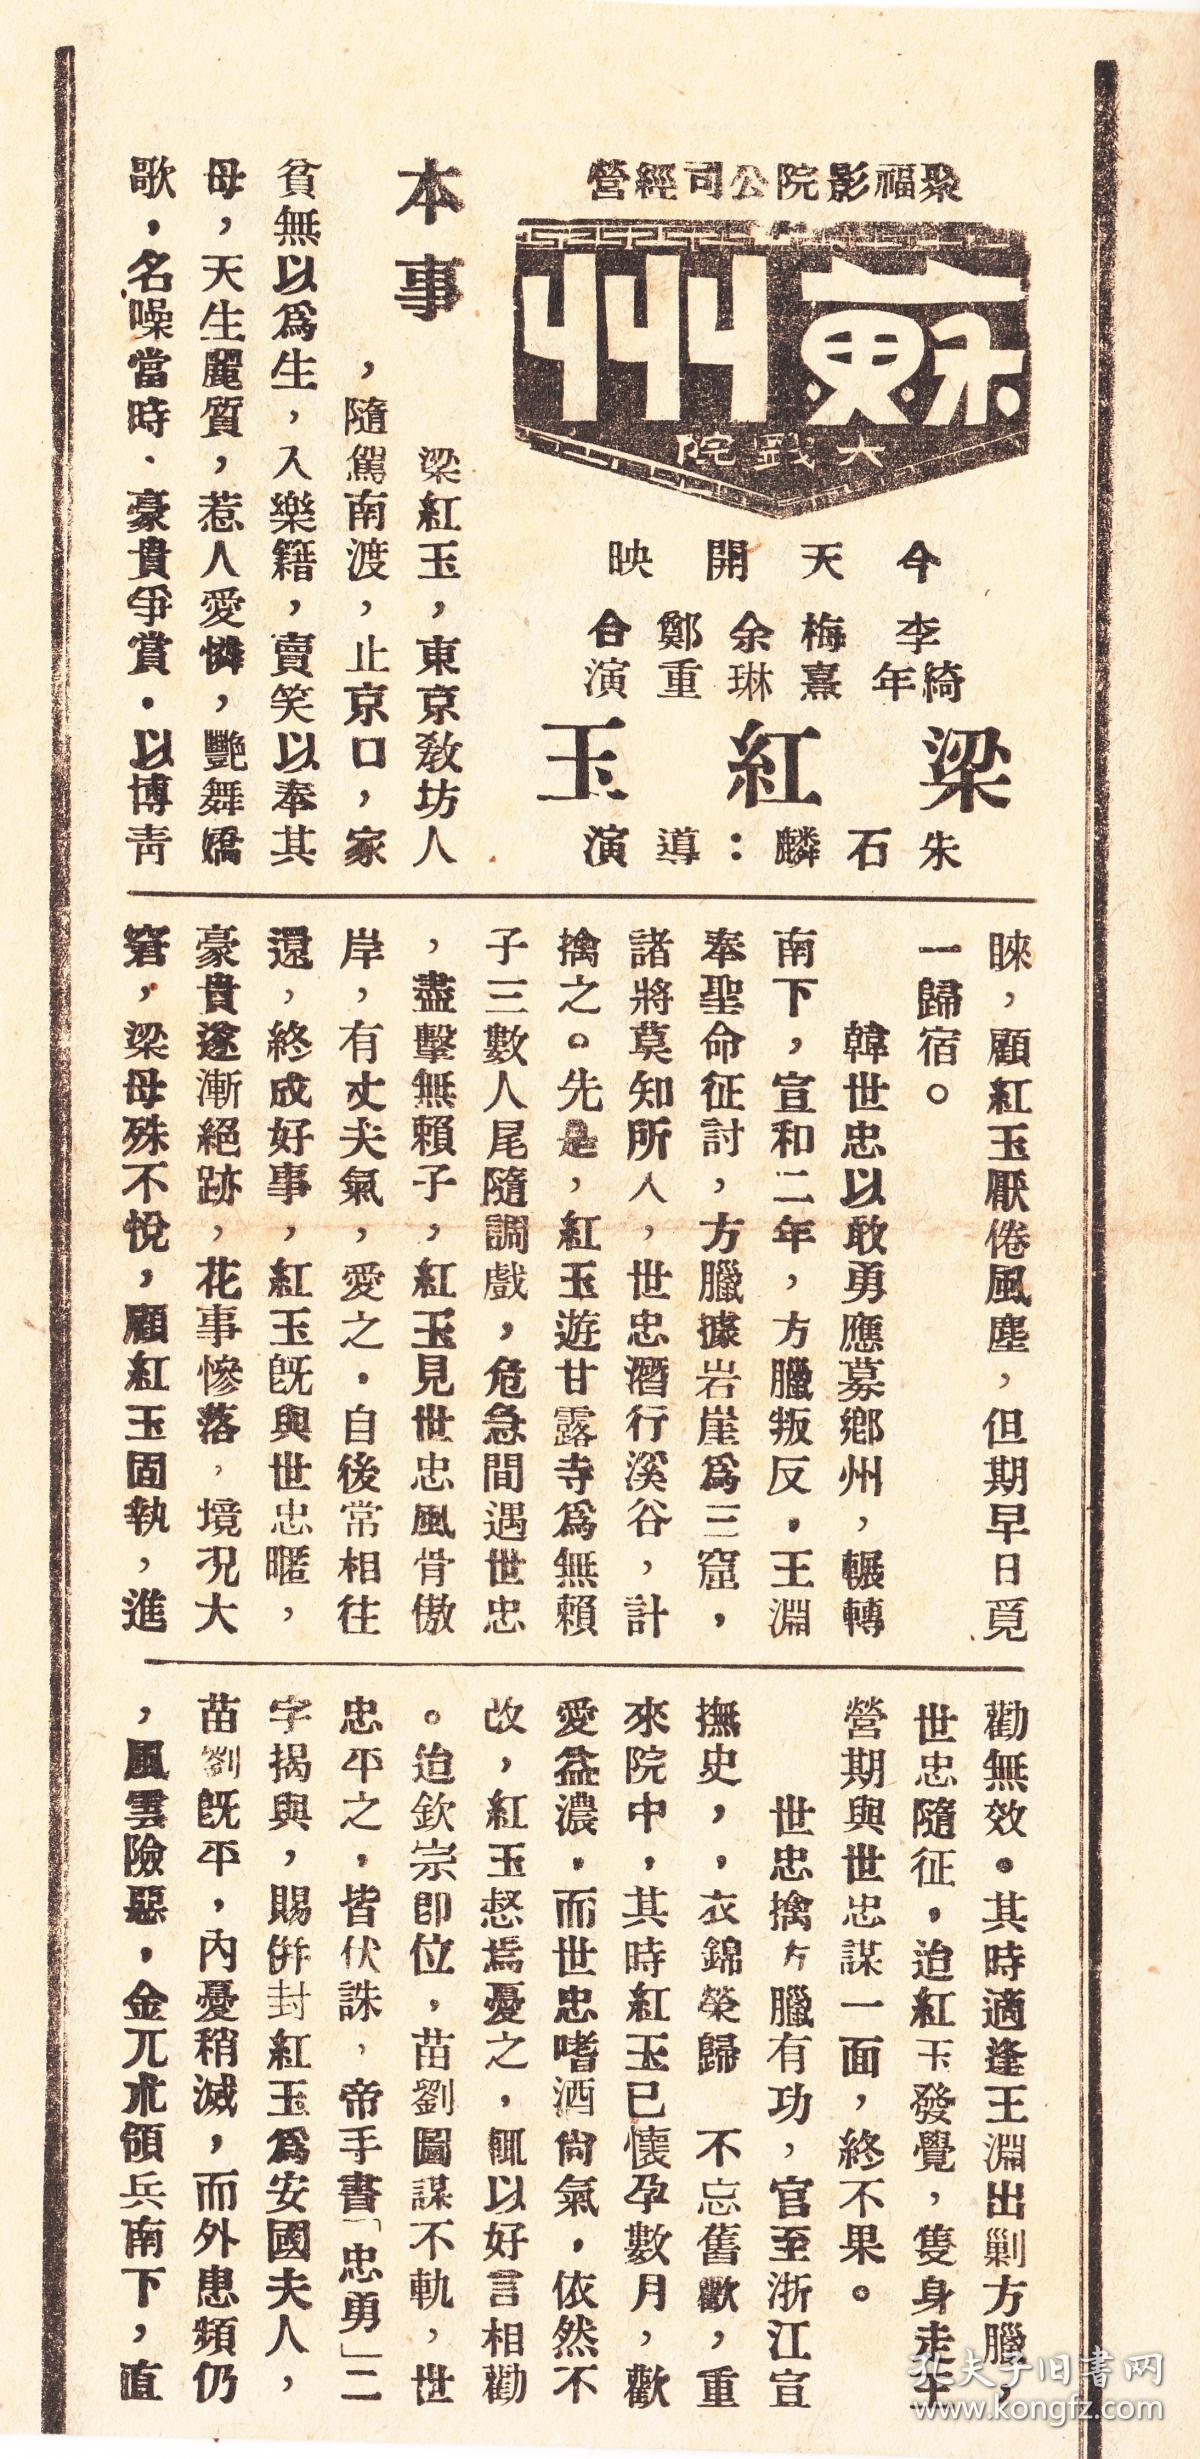 聚福影院公司經營
蘇州
大戲院
今天開映
李綺年
梅熹
余琳
鄭重
合演
梁紅玉
朱石麟：導演
本事
梁紅玉，東京教坊人
，隨駕南渡，止京口，家
貧無以爲生，入樂籍，賣笑以奉其
母，天生麗質，惹人愛憐，艷舞嬌
歌，名噪當時．豪貴爭賞．以博靑
睞，顧紅玉厭倦風塵，但期早日覓
一歸宿。
韓世忠以敢勇應募鄉州，輾轉
南下，宣和二年，方臘叛反．王淵
奉聖命征討，方臘據岩崖爲三窟，
諸將莫知所入，世忠潛行溪谷，計
擒之。先是，紅玉遊甘露寺爲無賴
子三數人尾隨調戲，危急間遇世忠
，盡擊無賴子，紅玉見世忠風骨傲
岸，有丈夫氣，愛之．自後常相往
還，終成好事，紅玉旣與世忠暱，
豪貴遂漸絕跡，花事慘落，境況大
窘，梁母殊不悅，顧紅玉固執，進
勸無效。其時適逢王淵出剿方臘，
世忠隨征，迨紅玉發覺，隻身走生
營期與世忠謀一面，終不果。
世忠擒方臘有功，官至浙江宣
撫史，，衣錦榮歸 不忘舊歡，重
來院中，其時紅玉已懷孕數月，歡
愛益濃．而世忠嗜酒尙氣，依然不
改，紅玉愁焉憂之，輒以好言相勸
。迨欽宗卽位，苗劉圖謀不軌，世
忠平之，皆伏誅，帝手書「忠勇」二
字揭與，賜倂封紅玉爲安國夫人，
苗劉旣平，內憂稍滅，而外患頻仍
，風雲險惡，金兀朮領兵南下，直
孔夫子旧書网
www.kongfz.com